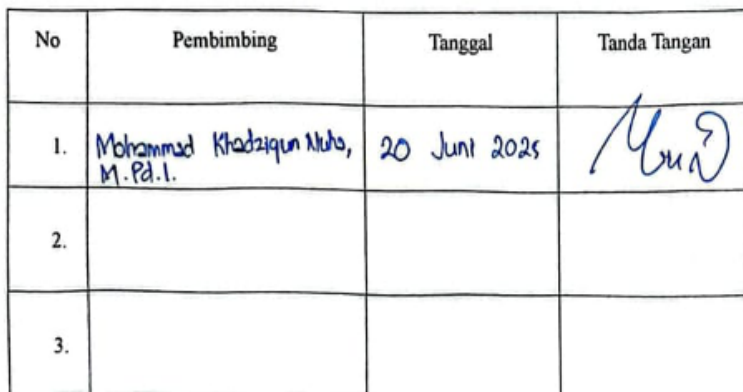 No Pembimbing Tanggal Tanda Tangan
1. Mohammad Khadziqun Nuha, 20 Juni 2025
M.Pd.I.
2.
3.